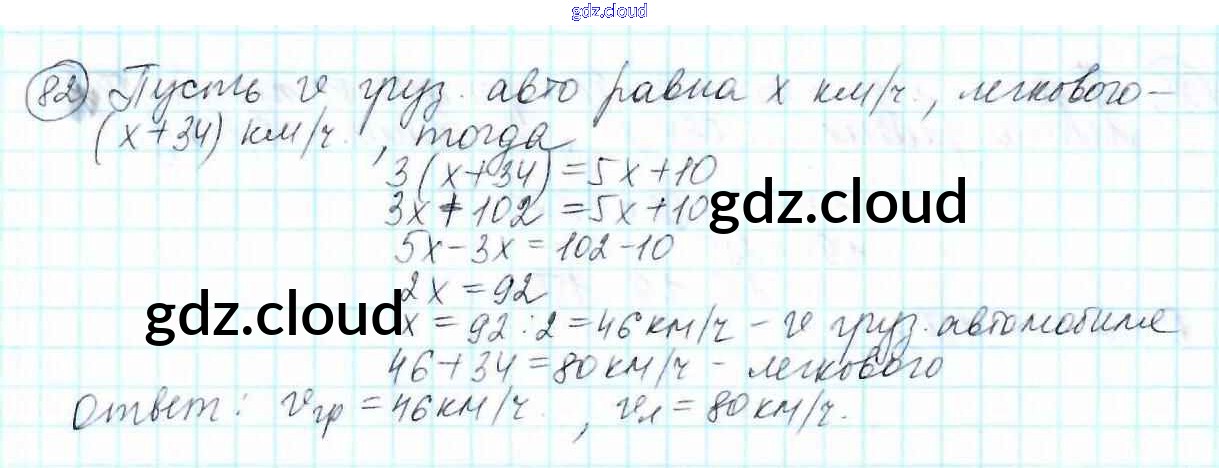 gdz.cloud
82) Пусть v груз. авто равна x км/ч., легкового –
(x+34) км/ч., тогда
3(x+34)=5x+10
3x+102=5x+10
gdz.cloud
5x-3x=102-10
2x=92
gdz.cloud
x=92:2=46 км/ч – v груз. автомобиля
46+34=80 км/ч – легкового
Ответ: vгр=46 км/ч., vл=80 км/ч.